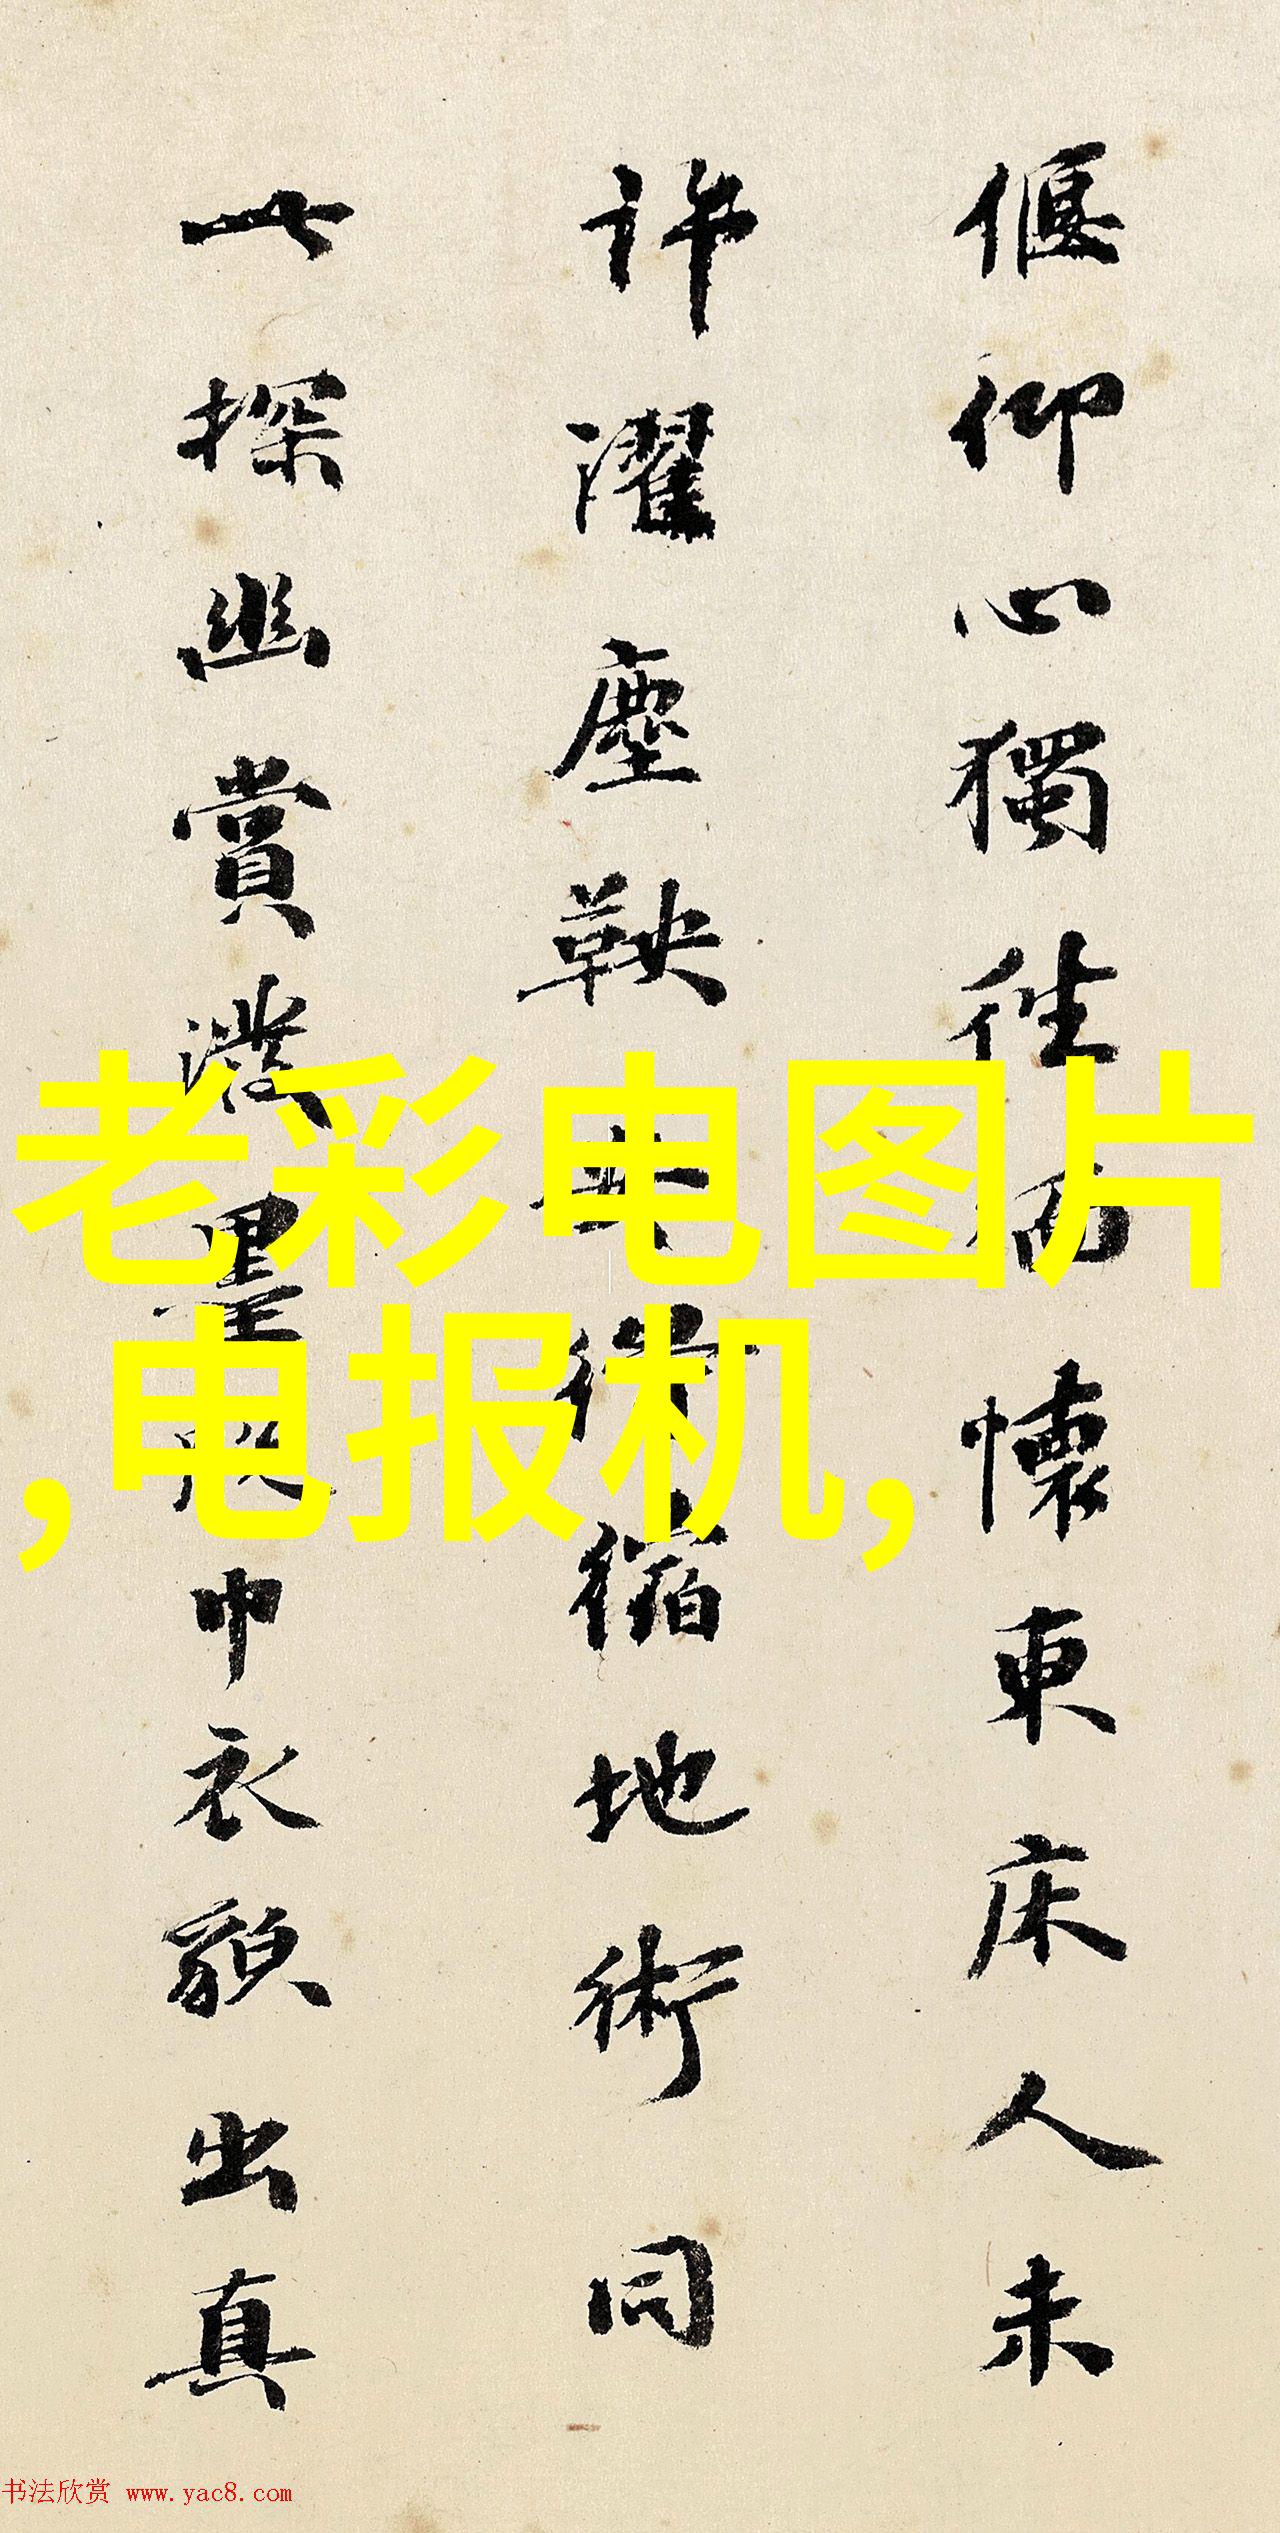 偃仰心獨往而懷東床人未
許濯塵鞅安得縮地術同
一探幽賞潑墨脫巾衣貌出真
老彩电图片
,电报机,
书法欣赏 www.yac8.com